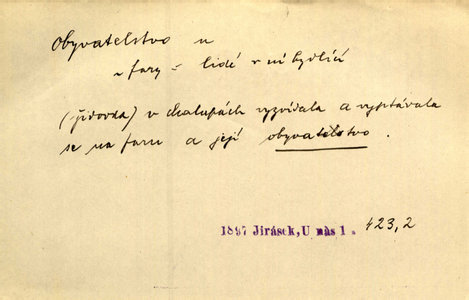 Obyvatelstvo n
~ fary = lidé v ní bydlící
(židovka) v chalupách vyzvídala a vyptávala
se na faru a její obyvatelstvo.
1897 Jirásek, U nás 1. 423,2